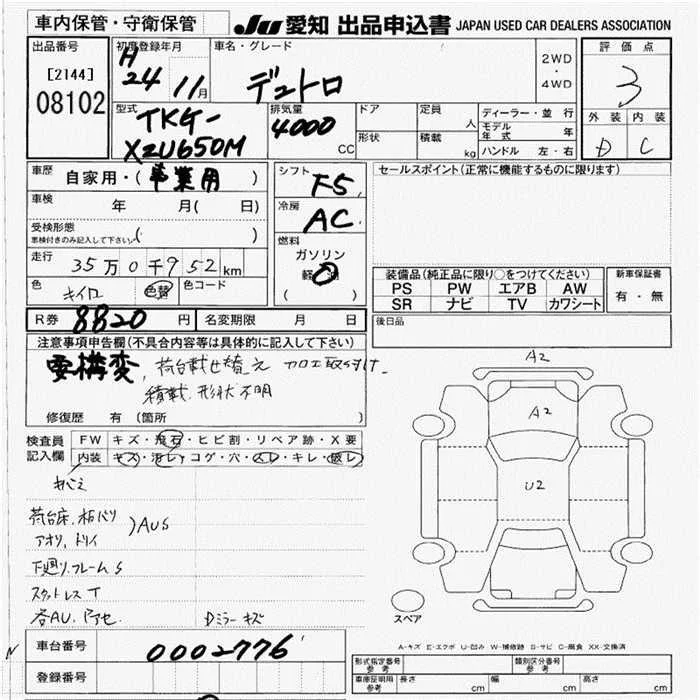 車内保管・守衛保管
JU 愛知 出品申込書 JAPAN USED CAR DEALERS ASSOCIATION
出品番号
[2144]
08102
初度登録年月
H
24年 11月
車名・グレード
デュトロ
2WD
・
4WD
評価点
3
外装 内装
D C
型式
TKG-
XZU650M
排気量
4000
CC
ドア
形状
定員
人
積載
kg
ディーラー・並行
モデル年式 年
ハンドル 左・右
車歴
自家用・(事業用)
車検
年 月( 日)
受検形態
車検付きのみ記入して下さい ( )
走行
35万0千952km
色
キイロ
色替
色コード
シフト
F5
冷房
AC
燃料
ガソリン
軽油
( )
セールスポイント(正常に機能するものに限ります)
装備品(純正品に限り○をつけてください)
PS PW エアB AW
SR ナビ TV カワシート
新車保証書
有・無
R券 8820円
名変期限 月 日
後日品
注意事項申告欄(不具合内容等は具体的に記入して下さい)
要構変, 荷台載せ替え 加工取り付け
積載、形状不明
修復歴 有 (箇所 )
検査員
記入欄
FW キズ・飛石・ヒビ割・リペア跡・X要
内装 キズ・汚レ・コゲ・穴・スレ・キレ・破レ
荷台床、
アオリ、
AUS
下廻り、フレームS
各AU、
Dミラーキズ
A2
A2
U2
スペア
A-キズ E-エクボ U-凹み W-補修跡 S-サビ C-腐食 XX-交換済
車台番号
0002776
登録番号
型式指定番号
参考
類別区分番号
参考
車庫証明用
参考
長さ cm
幅 cm
高さ cm